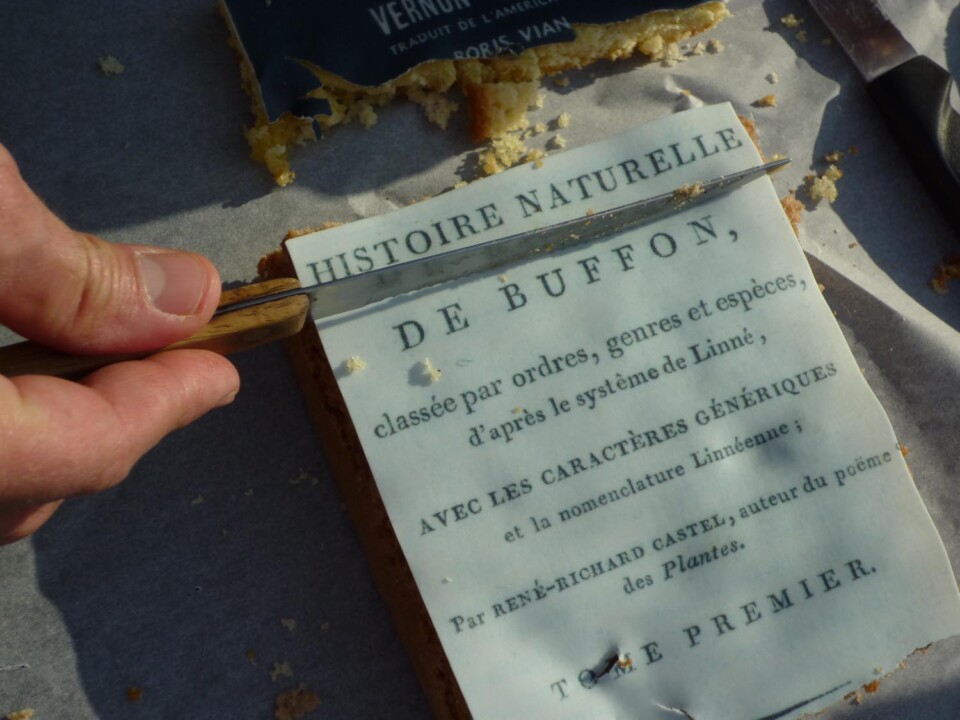 VERNON
TRADUIT DE L'AMÉRICA
BORIS VIAN
HISTOIRE NATURELLE
DE BUFFON,
classée par ordres, genres et espèces,
d'après le systême de Linné,
AVEC LES CARACTÈRES GÉNÉRIQUES
et la nomenclature Linnéenne;
Par RENÉ-RICHARD CASTEL, auteur du poëme
des Plantes.
TOME PREMIER.